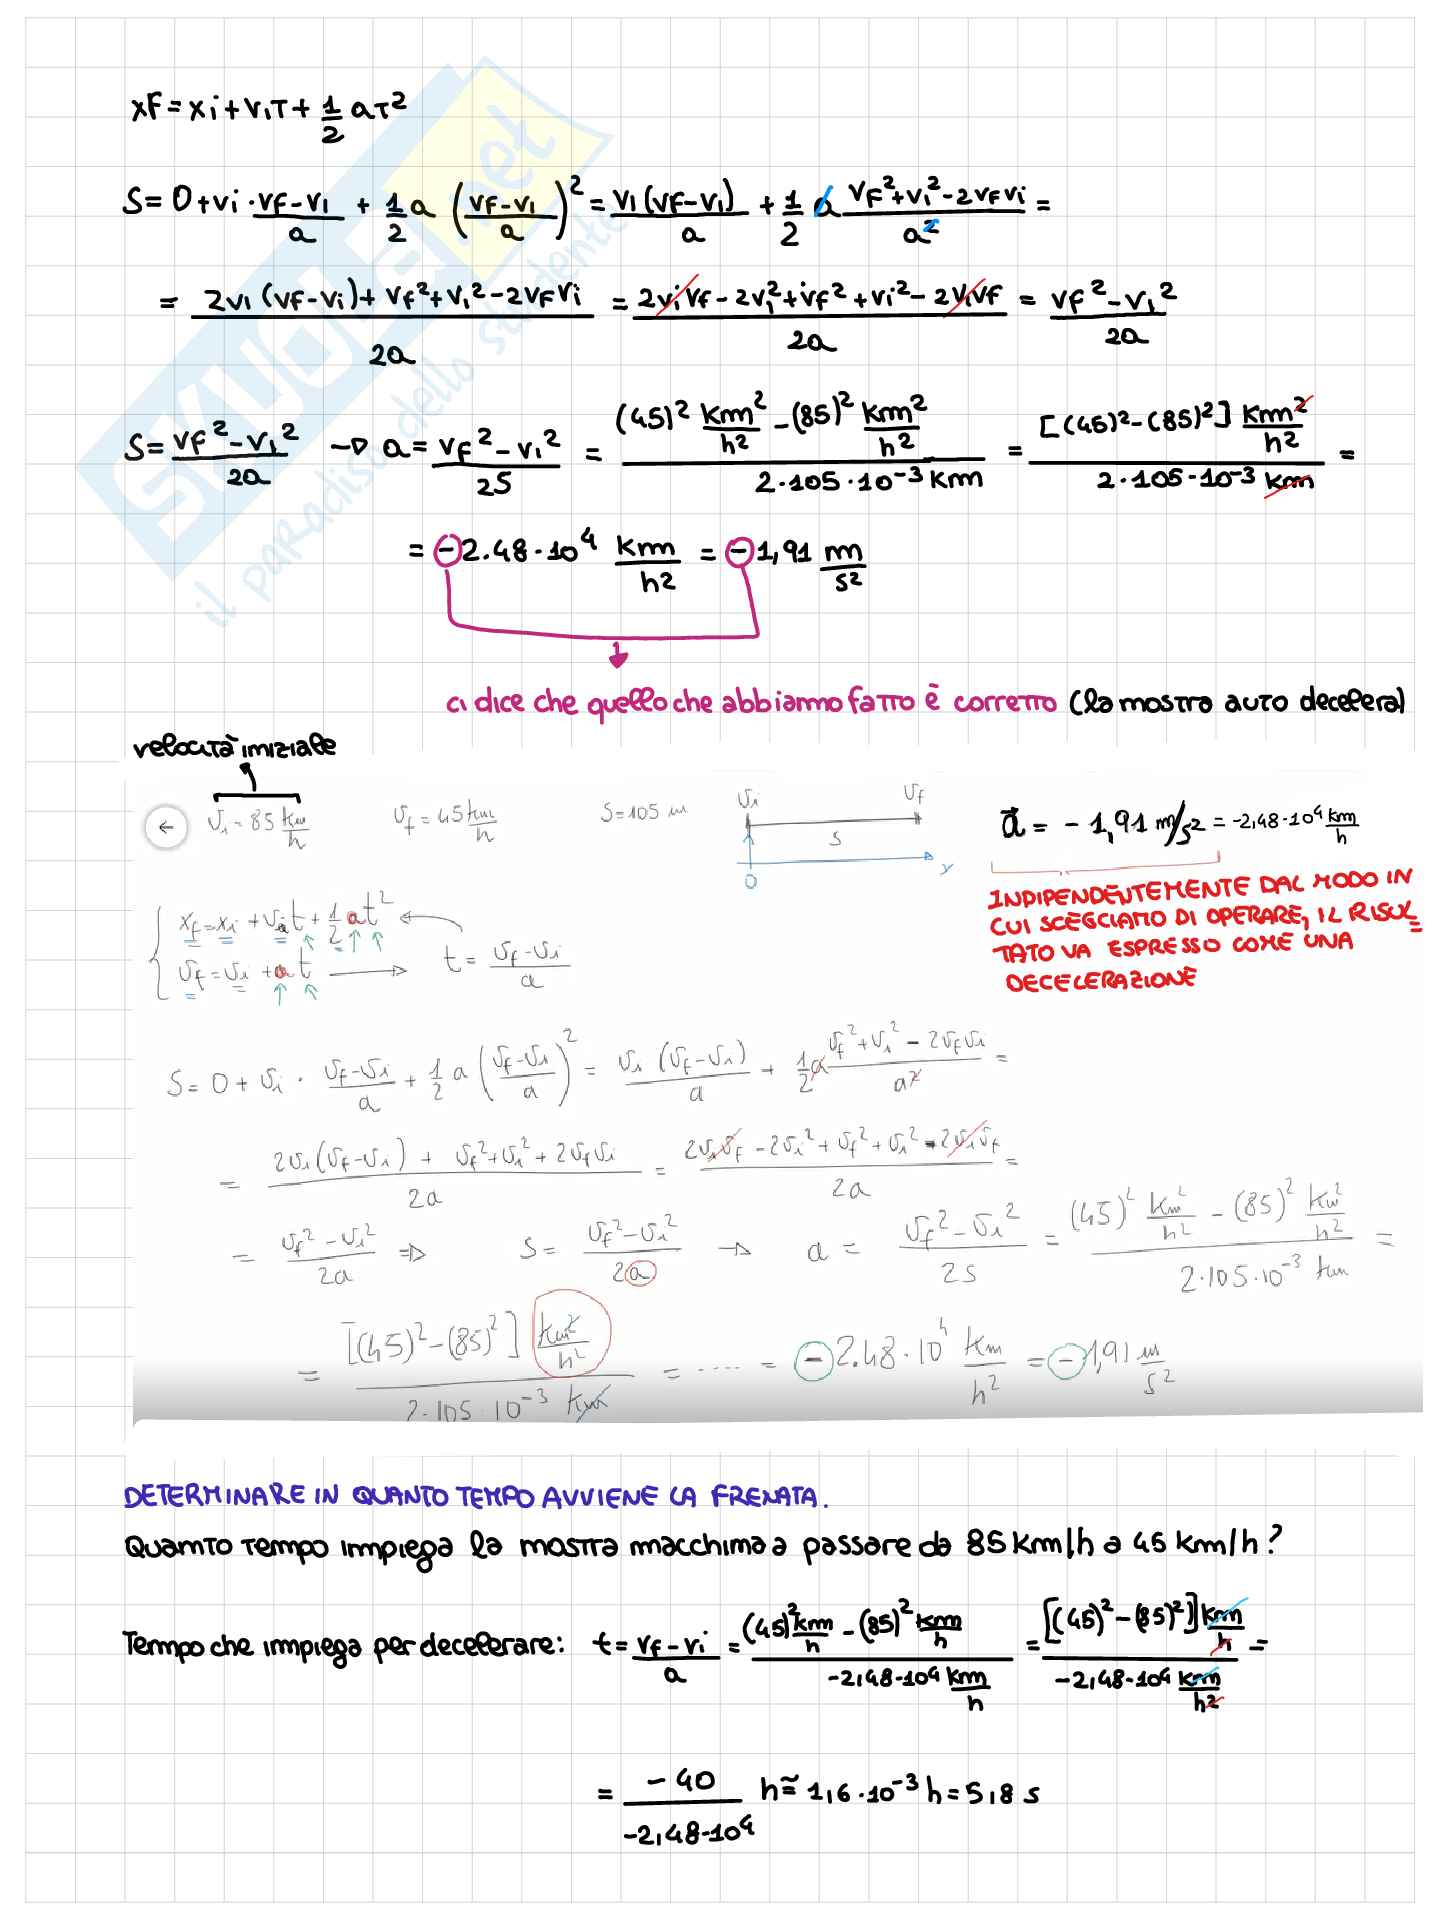 xF = xi + viT + 1/2 aT²
S = 0 + vi · (vf - vi)/a + 1/2 a ((vf - vi)/a)² = vi(vf - vi)/a + 1/2 a (vF² + vi² - 2vFvi)/a² =
= (2vi(vf - vi) + vf² + vi² - 2vFvi)/2a = (2vivf - 2vi² + vf² + vi² - 2vivf)/2a = (vf² - vi²)/2a
S = (vf² - vi²)/2a → a = (vf² - vi²)/2S = ((45)² km²/h² - (85)² km²/h²)/(2·105·10⁻³ km) = ([(45)² - (85)²] km²/h²)/(2·105·10⁻³ km) =
= -2.48·10⁴ km/h² = -1,91 m/s²
ci dice che quello che abbiamo fatto è corretto (la nostra auto decelera)
velocità iniziale
vi = 85 km/h vf = 45 km/h S = 105 m vi vf S 0 x a = -1,91 m/s² = -2,48·10⁴ km/h
INDIPENDENTEMENTE DAL MODO IN
CUI SCEGLIAMO DI OPERARE, IL RISUL
TATO VA ESPRESSO COME UNA
DECELERAZIONE
xf = xi + vi t + 1/2 at²
vf = vi + at → t = (vf - vi)/a
S = 0 + vi · (vf - vi)/a + 1/2 a ((vf - vi)/a)² = vi (vf - vi)/a + 1/2 a (vf² + vi² - 2vfvi)/a² =
= (2vi(vf - vi) + vf² + vi² + 2vfvi)/2a = (2vivf - 2vi² + vf² + vi² - 2vivf)/2a =
= (vf² - vi²)/2a ⇒ S = (vf² - vi²)/2a → a = (vf² - vi²)/2s = ((45)² km²/h² - (85)² km²/h²)/(2·105·10⁻³ km) =
= ([(45)² - (85)²] km²/h²)/(2·105·10⁻³ km) = ..... = -2.48·10⁴ km/h² = -1,91 m/s²
DETERMINARE IN QUANTO TEMPO AVVIENE LA FRENATA.
Quanto tempo impiega la nostra macchina a passare da 85 km/h a 45 km/h?
Tempo che impiega per decelerare: t = (vf - vi)/a = ((45)² km/h - (85)² km/h)/(-2,48·10⁴ km/h) = ([(45)² - (85)²] km/h)/(-2,48·10⁴ km/h²) =
= -40/(-2,48·10⁴) h ≅ 1,6·10⁻³ h = 5,8 s
SKUOLA.net
il paradiso dello studente